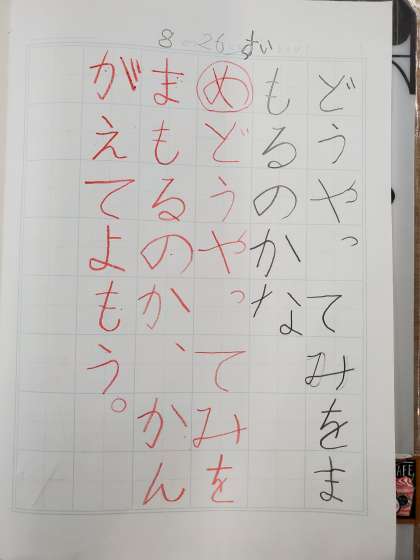 8-26 すい
どうやってみをま
もるのかな
めどうやってみを
まもるのか、かん
がえてよもう。